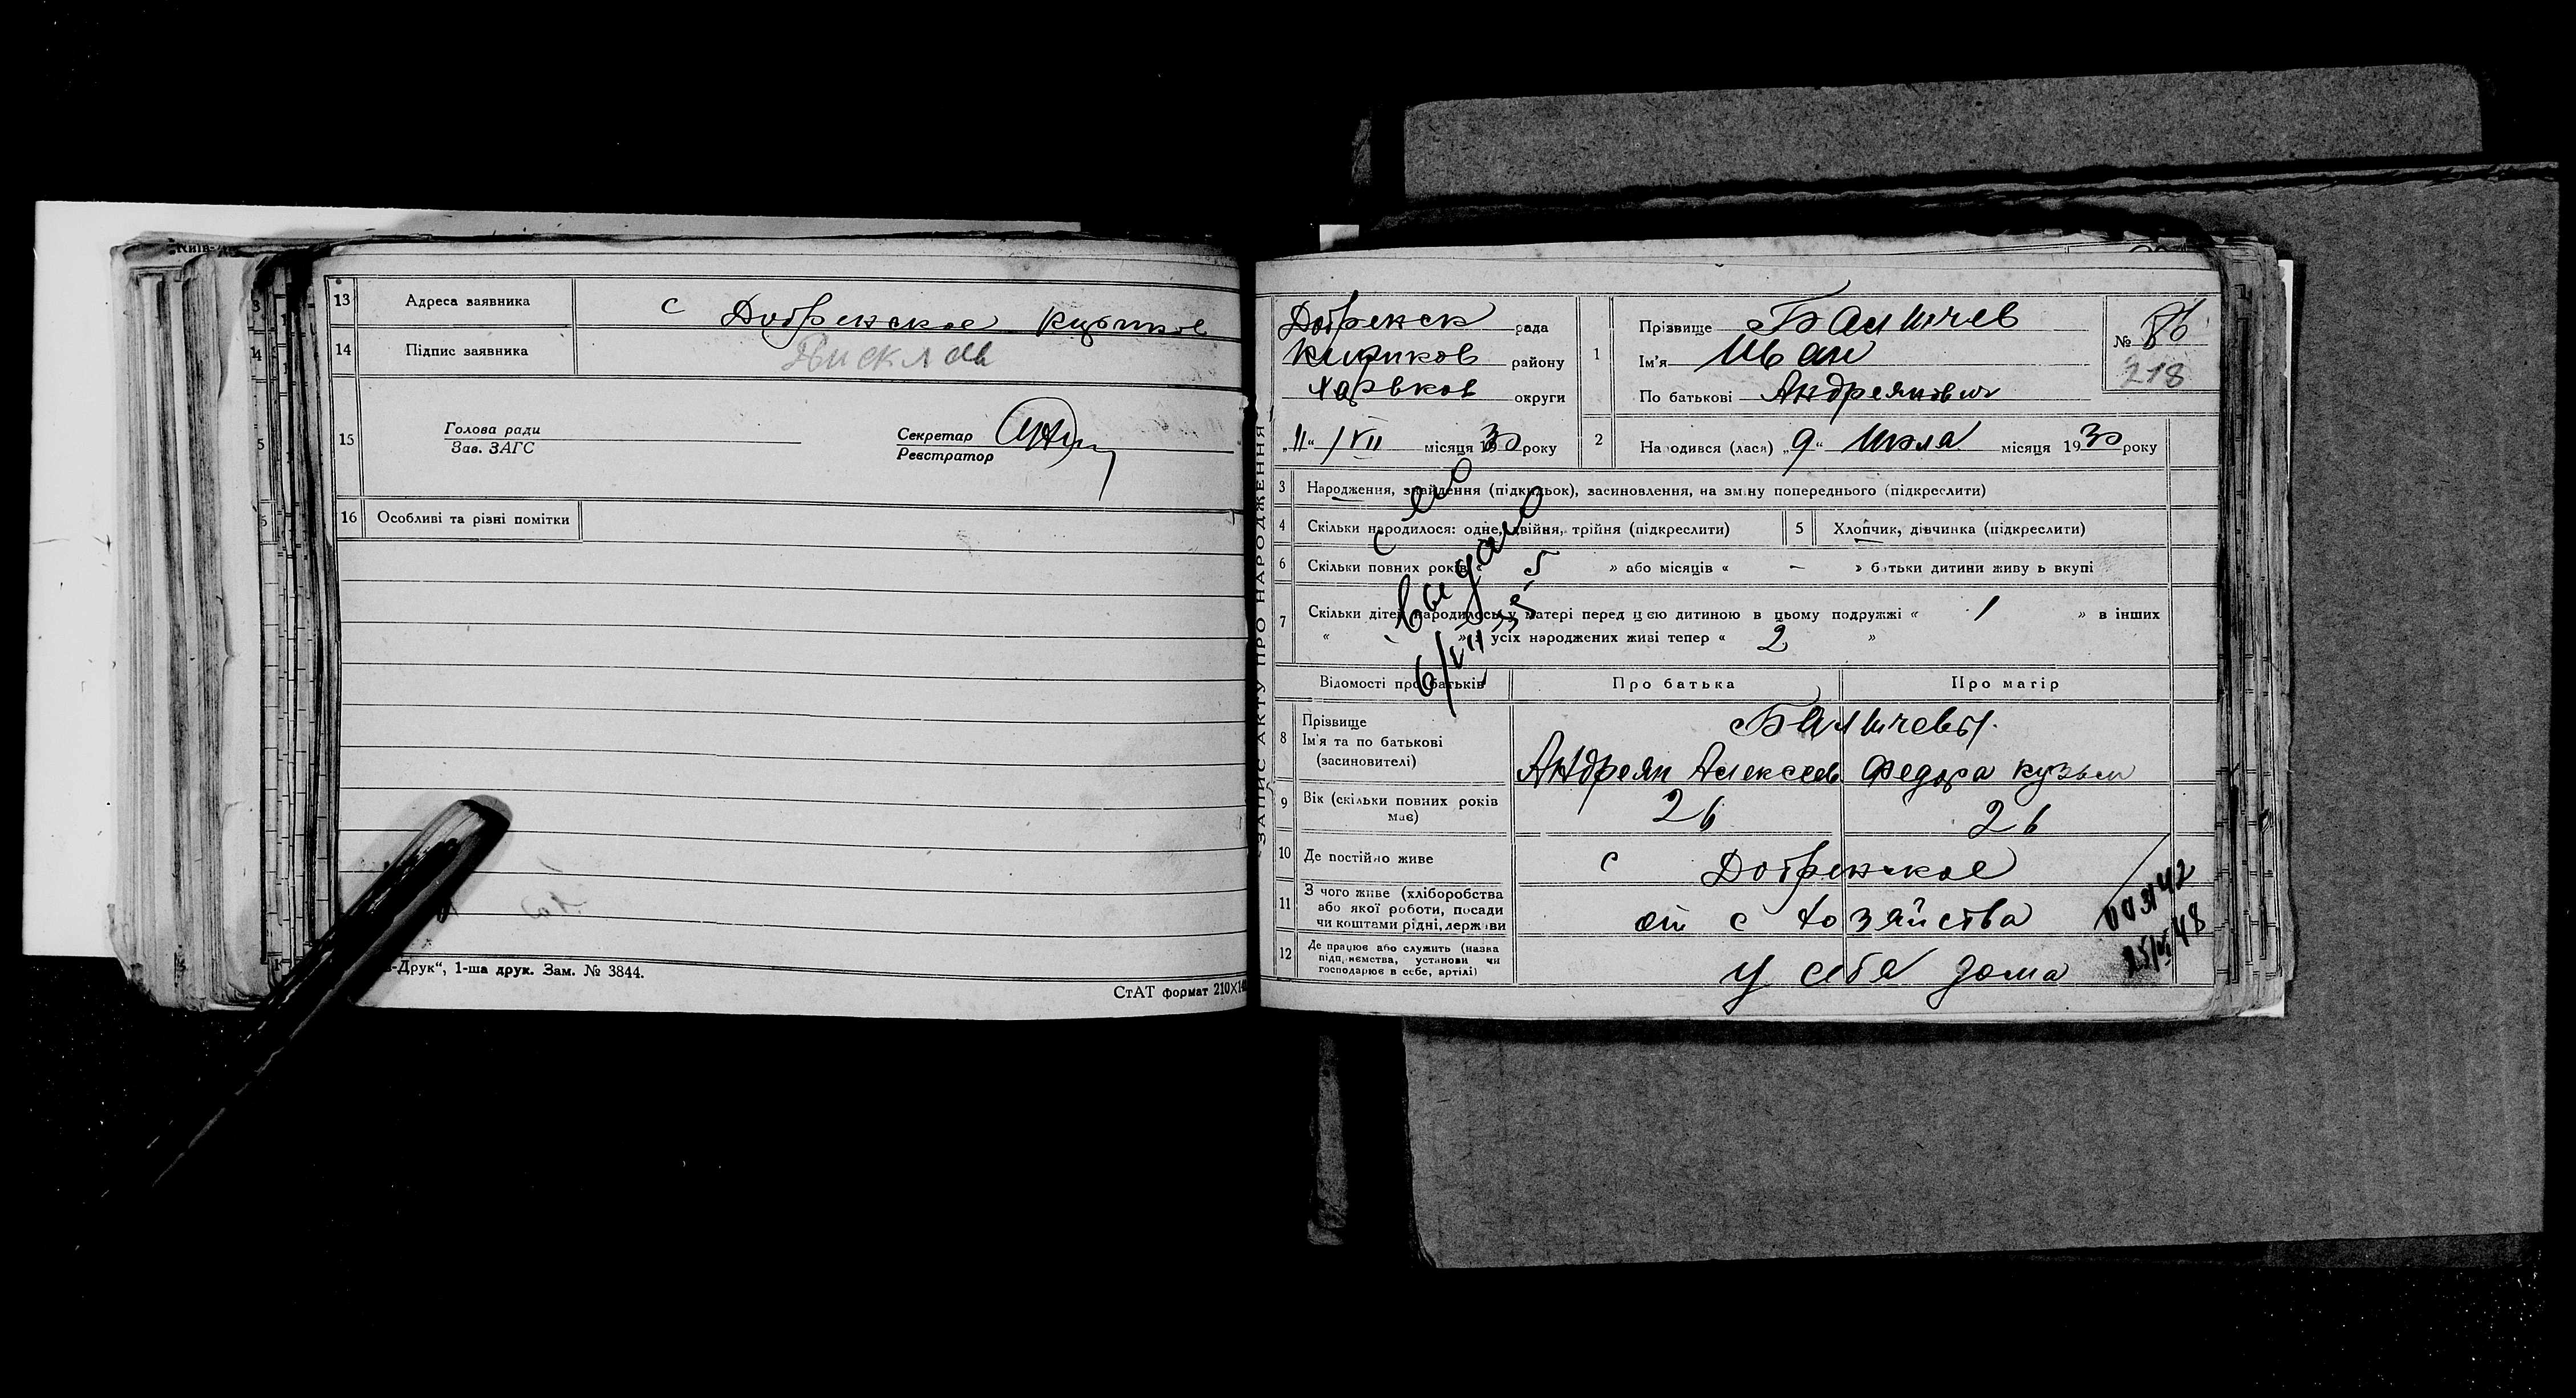 13 Адреса заявника с Добренское
14 Підпис заявника
15 Голова ради
Зав. ЗАГС
Секретар
Реєстратор
16 Особливі та різні помітки
-Друк“, 1-ша друк. Зам. № 3844.
СтАТ формат 210X14
ЗАПИС АКТУ ПРО НАРОДЖЕННЯ
Добренск рада
района району
Харьков округи
„11“ /VII місяця 1930 року
1 Прізвище
Ім'я Иван
По батькові Андреянович
№ 86
218
2 Народився (лася) „9“ Июля місяця 1930 року
3 Народження, знайдення (підкидьок), засиновлення, на зміну попереднього (підкреслити)
4 Скільки народилося: одне, двійня, трійня (підкреслити)
5 Хлопчик, дівчинка (підкреслити)
6 Скільки повних років « 5 » або місяців « – » батьки дитини живуть вкупі
7 Скільки дітей народилось у матері перед цією дитиною в цьому подружжі « 1 » в інших
« » з усіх народжених живі тепер « 2 »
выдано
6/VII 35
Відомості про батьків Про батька Про матір
8 Прізвище
Ім'я та по батькові
(засиновителі)
Андреян Алексеев Федора Кузьм
9 Вік (скільки повних років має) 26 26
10 Де постійно живе с Добренское
11 З чого живе (хліборобства
або якої роботи, посади
чи коштами рідні, держави
от с хозяйства
12 Де працює або служить (назва
підприємства, установи чи
господарює в себе, артілі)
у себя дома